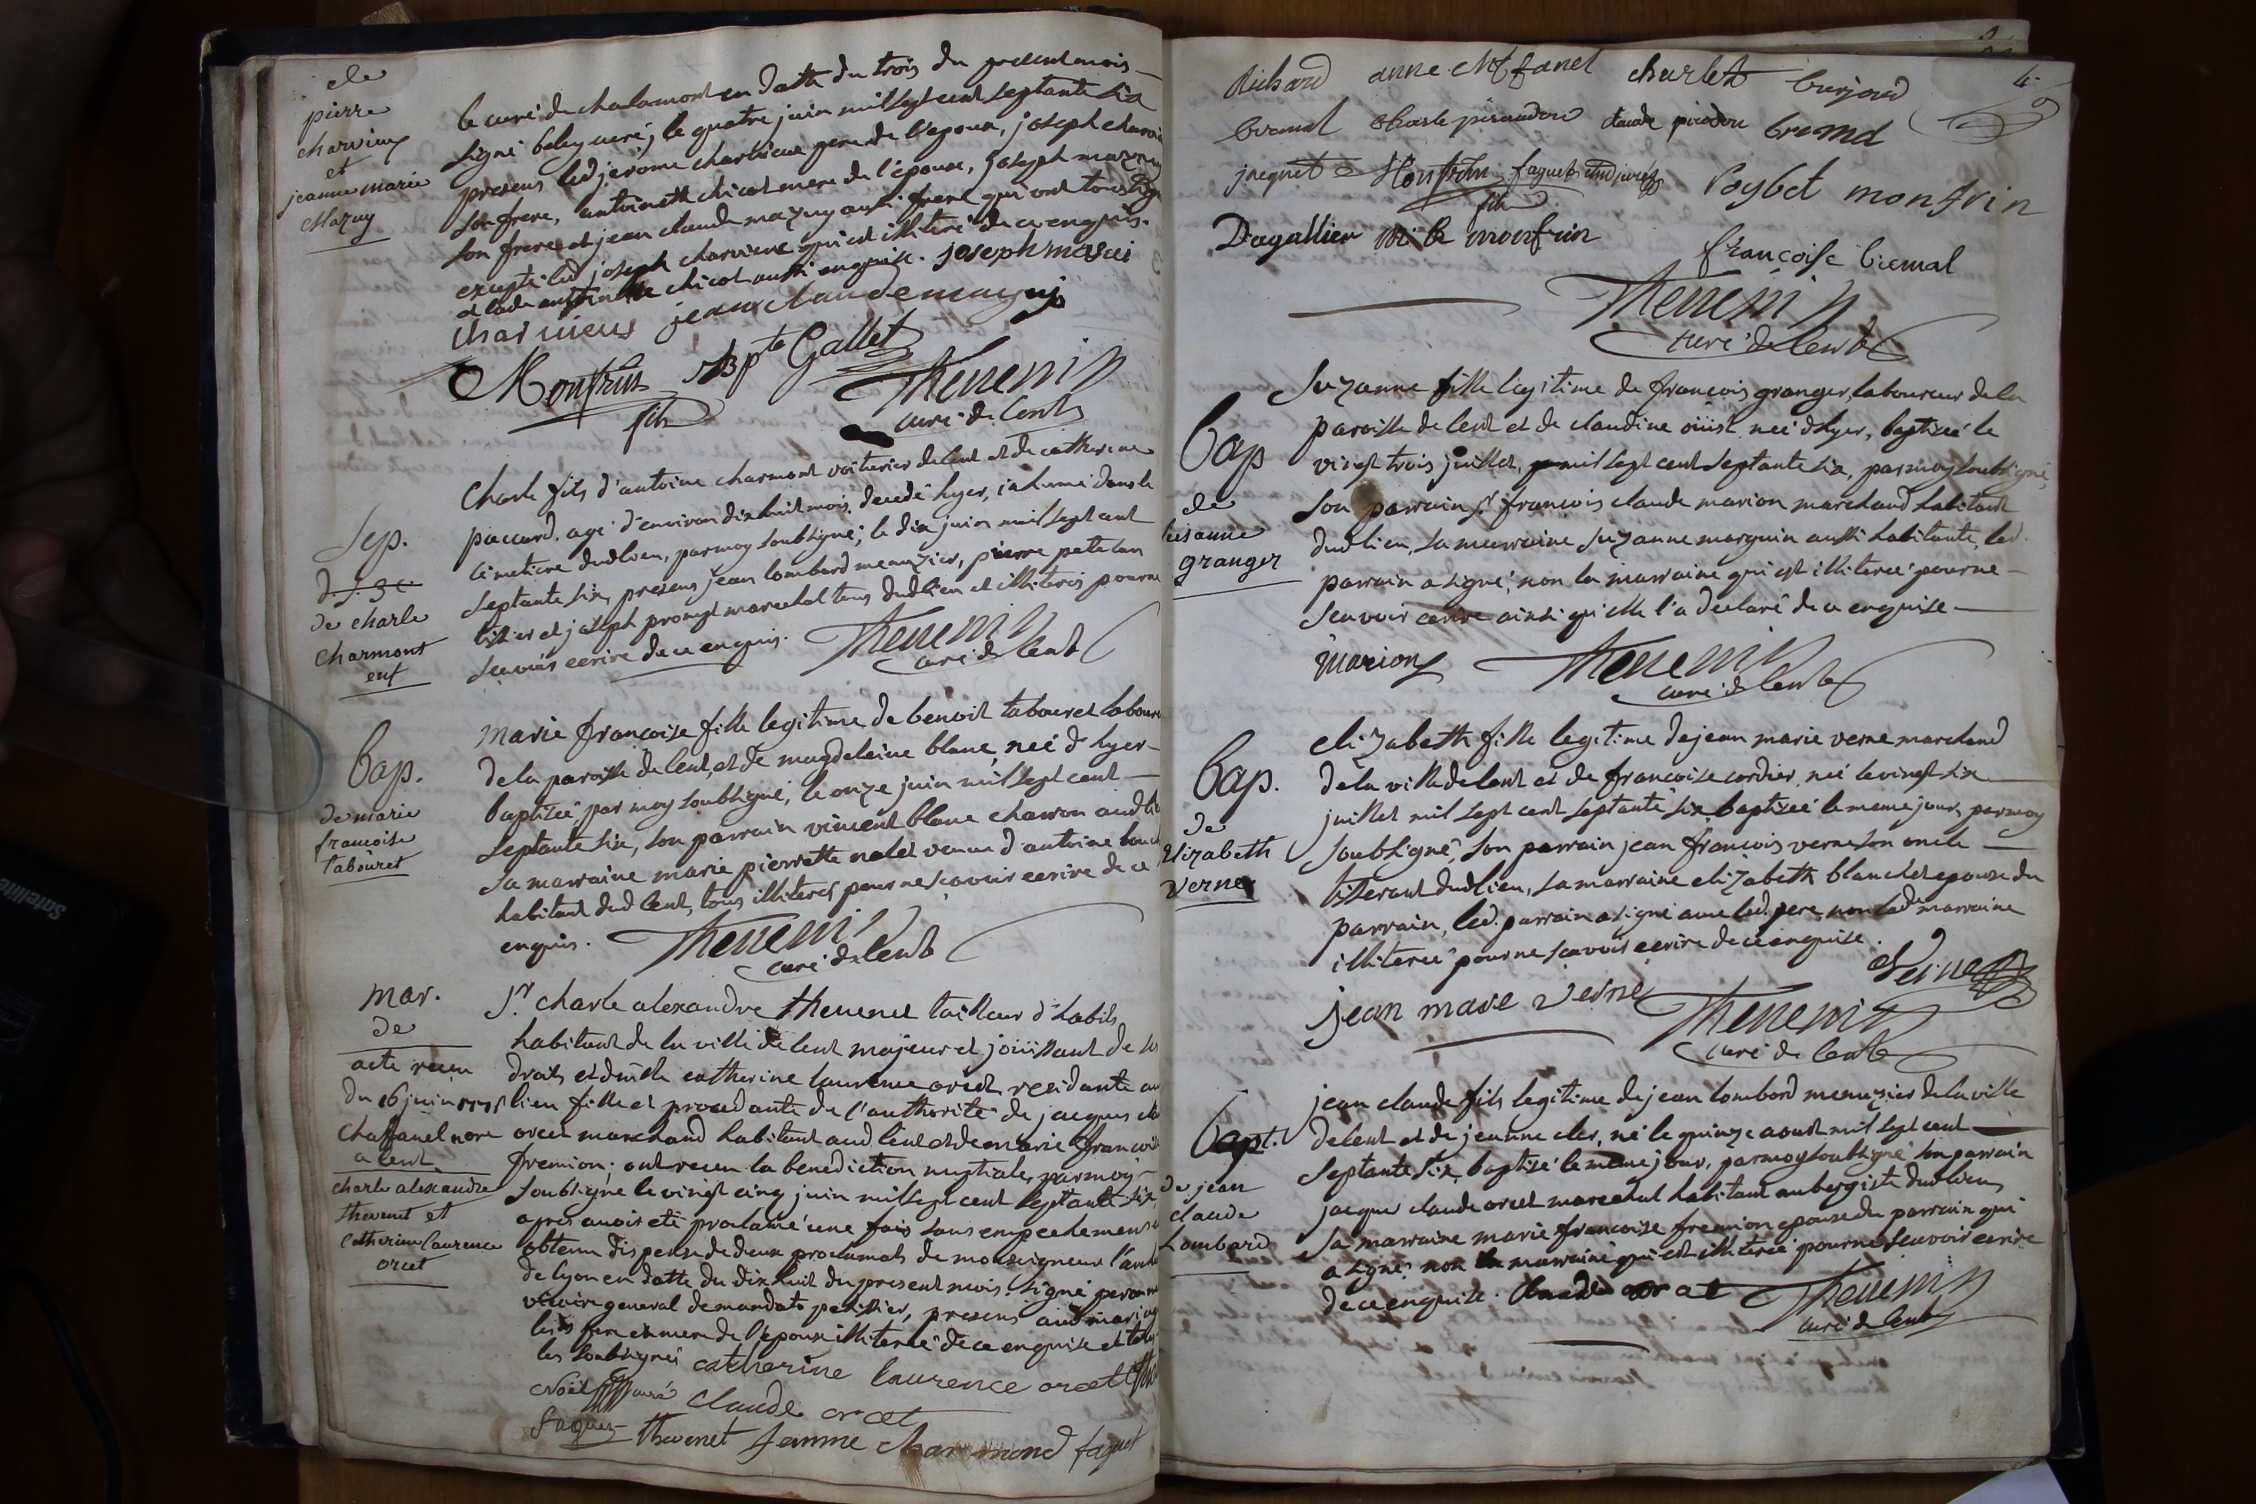 de
pierre
charvieux
et
jeanne marie
Mazuy
le curé de chalamont en datte du trois du present mois
signé beley curé, le quatre juin mil sept cent septante six
presens led jerome charvieux pere de l'epoux, joseph charvieux
son frere, antoinette chicot mere de l'epouse, joseph mazuy
son frere et jean claude mazuy aussi frere qui ont tous signé
excepté led joseph charvieux qui est illiteré de ce enquis.
et lade antoinette chicot aussi enquise. joseph masui
charvieus jean claude mazuy
Monfrin fils JBpte Gallet Thevenin
curé de lent
Sep.
de charle
charmont
enf
Charle fils d'antoine charmont voiturier de lent et de catherine
paccard, agé d'environ dix huit mois, decedé hyer, inhumé dans le
cimetiere dudlieu, par moy soubsigné, le dix juin mil sept cent
septante six, presens jean lombard menuzier, pierre petetan
tissier et joseph promyt marechal tous dudlieu et illiterés pour ne
scavoir ecrire de ce enquis. Thevenin
curé de lent
Bap.
de marie
francoise
tabouret
Marie françoise fille legitime de benoit tabouret laboureur
de la paroisse de lent, et de magdeleine blanc, neé d'hyer
baptisée par moy soubsigné, le onze juin mil sept cent
septante six, son parrain vincent blanc charron audlieu
sa marraine marie pierrette nolet veuve d'antoine
habitant dud lent, tous illiterés pour ne scavoir ecrire de ce
enquis. Thevenin
curé de lent
mar.
de
acte receu
du 16 juin 1776
Chaffanel nore
a lent
charle alexandre
thevenet et
Catherine laurence
orcet
Sr. charle alexandre thevenet tailleur d'habits
habitant de la ville de lent majeur et joüissant de ses
droits et dlle catherine laurence orcet residante aud
lieu fille et procedante de l'authorité de jacques claude
orcet marchand habitant aud lieu et de marie françoise
fremion; ont receu la benediction nuptiale, par moy
soubsigné le vingt cinq juin mil sept cent septante six,
apres avoir eté proclamé une fois sans empechement et
obtenu dispense de deux proclamats de monseigneur l'archeveque
de lyon en datte du dix huit du present mois signé
vicaire general de mandato presens aud mariage
les pere et mere de l'epouse illiterée de ce enquise et
les soubsignés catherine laurence orcet
Noël claude orcet
faguet thevenet jeanne charmond faguet
4
Richard anne charlet burjoud
bremal charle piraudon claude piraudon bremal
jaequet Monfrin fils faguet Poybet monfrin
Dagallier monfrin
françoise bremal
Thevenin
curé de lent
Bap
de
suisanne
granger
Suzanne fille legitime de françois granger laboureur de la
paroisse de lent et de claudine oüist neé d'hyer, baptiseé le
vingt trois juillet, mil sept cent septante six, par moy soubsigné,
son parrain sr françois claude marion marchand habitant
dudlieu, sa marraine suzanne marguin aussi habitante, led.
parrain a signé, non la marraine qui est illitereé pour ne
scavoir ecrire ainsi qu'elle l'a declaré de ce enquise
Marion Thevenin
curé de lent
Bap.
de
Elizabeth
verne
Elizabeth fille legitime de jean marie verne marchand
de la ville de lent et de françoise cordier, neé le vingt six
juillet mil sept cent septante six baptiseé le meme jour, par moy
soubsigné, son parrain jean françois verne son oncle
tisserant dudlieu, sa marraine elizabeth blanchet epouse du
parrain, led. parrain a signé avec led. pere, non lade marraine
illitereé pour ne scavoir ecrire de ce enquise.
Verne
jean marie verne Thevenin
curé de lent
Bapt.
de jean
claude
Lombard
jean claude fils legitime de jean lombard menuzier de la ville
de lent et de jeanne cler, né le quinze aoust mil sept cent
septante six, baptisé le meme jour, par moy soubsigné son parrain
jacque claude orcet marechal habitant aubergiste dudlieu,
sa marraine marie françoise fremion epouse du parrain qui
a signé, non la marraine qui est illitereé pour ne scavoir ecrire
de ce enquise. claude orcet Thevenin
curé de lent
Satellite